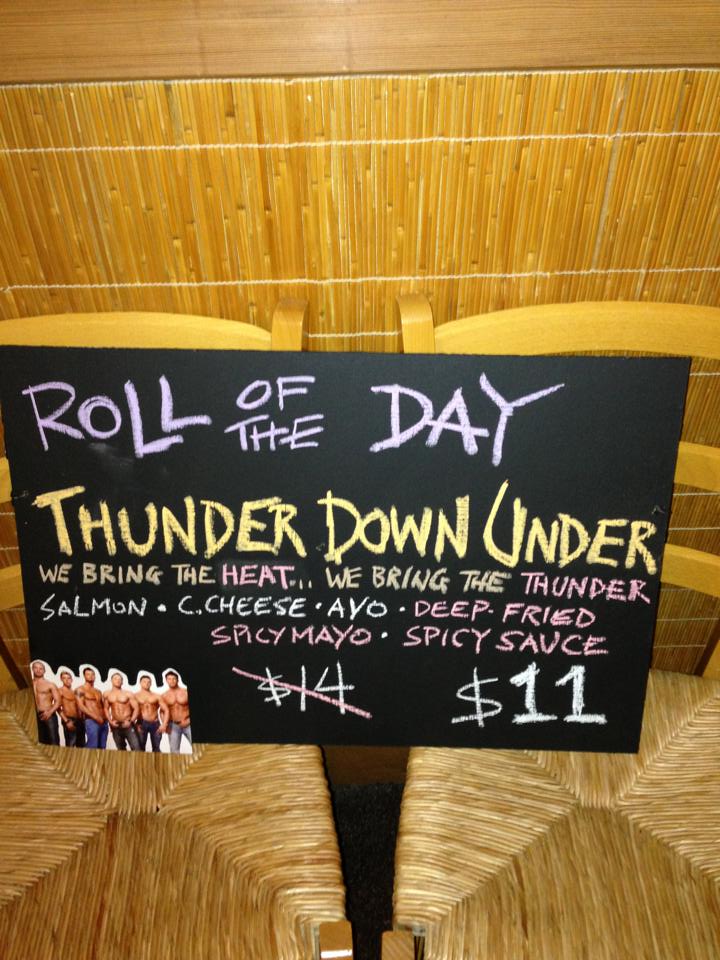 ROLL OF THE DAY
THUNDER DOWN UNDER
WE BRING THE HEAT... WE BRING THE THUNDER
SALMON • C.CHEESE • AVO • DEEP-FRIED
SPICY MAYO • SPICY SAUCE
$14 $11